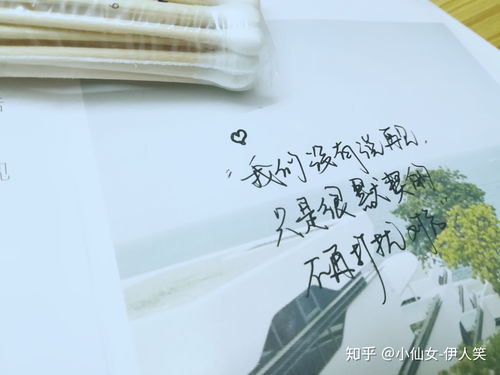 “我们没有说再见,
只是很默契的
不再打扰
知乎 @小仙女-伊人笑